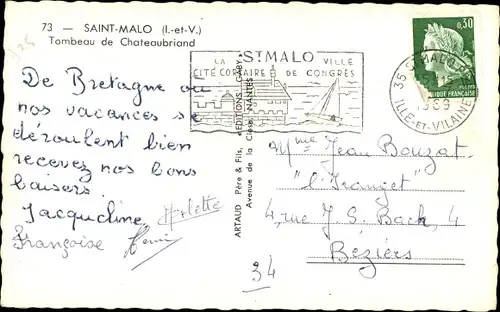 73 — SAINT-MALO (I.-et-V.)
Tombeau de Chateaubriand
De Bretagne où
nos vacances se
déroulent bien
recevez nos bons
baisers.
Jacqueline Arlette
Françoise
LA St MALO VILLE
CITÉ CORSAIRE DE CONGRÈS
ARTAUD Père & Fils, "EDITIONS GABY"
Avenue de la Close, NANTES
0,30
35 ST MALO
1969
ILLE-ET-VILAINE
Mme Jean Bouzat
"l'Iranget"
4, rue J. S. Bach, 4
Béziers
34